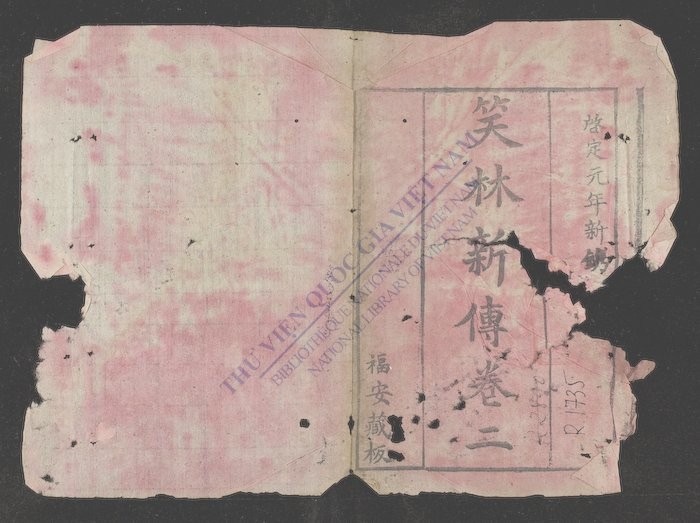 啓定元年新鐫
笑林新傳卷二
福安藏板
R1735
THƯ VIỆN QUỐC GIA VIỆT NAM
BIBLIOTHÈQUE NATIONALE DU VIETNAM
NATIONAL LIBRARY OF VIETNAM